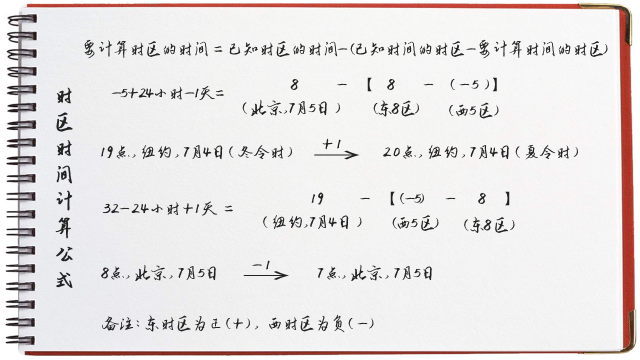 时区时间计算公式
要计算时区的时间=已知时区的时间-(已知时间的时区-要计算时间的时区)
-5+24小时-1天= 8 - 【 8 - (-5)】
(北京,7月5日) (东8区) (西5区)
19点,纽约,7月4日(冬令时) +1 20点,纽约,7月4日(夏令时)
32-24小时+1天= 19 - 【(-5) - 8 】
(纽约,7月4日) (西5区) (东8区)
8点,北京,7月5日 -1 7点,北京,7月5日
备注:东时区为正(+),西时区为负(-)